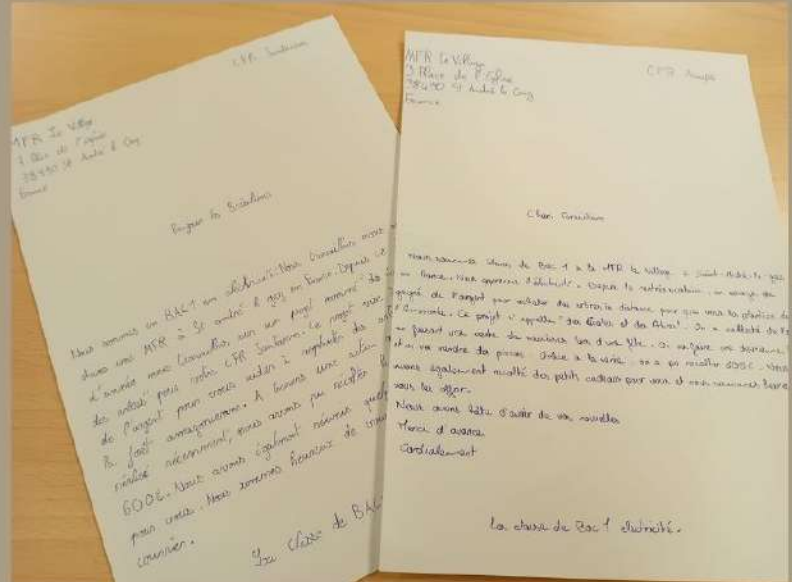 CFR Santarem
MFR Le Village
3 Place de l'église
38490 St André le Gaz
France
Bonjour les Brésiliens
Nous sommes en BAC 1 en électricité. Nous travaillons
dans une MFR à St André le gaz en France. Depuis
d'année nous travaillons sur un projet nommé "des
des arbres" pour votre CFR Santarem. Ce projet
de l'argent pour vous aider à replanter des
la forêt amazonienne. A travers une action
réalisé récemment, nous avons pu récolter
600€. Nous avons également
pour vous. Nous sommes heureux de
courrier.
La classe de BAC
MFR Le Village
3 Place de l'Eglise
38490 St André le Gaz
France
CFR
Cher
Nous sommes élèves de Bac 1 à la MFR le Village à Saint-André-le-gaz
en France. Nous apprenons l'électricité. Depuis la rentrée scolaire, on essaye de
gagné de l'argent pour acheter des arbres à distance pour que vous les plantiez
Ce projet s'appelle "des étoiles et des Arbres". On a collecté
en faisant une vente
et on va vendre des Grâce à la vente, on a pu récolter 600€. Nous
avons également récolté des petits cadeaux pour vous et nous sommes
vous les offrir.
Nous avons hâte d'avoir de vos nouvelles
Merci d'avance
Cordialement
La classe de Bac 1 électricité.